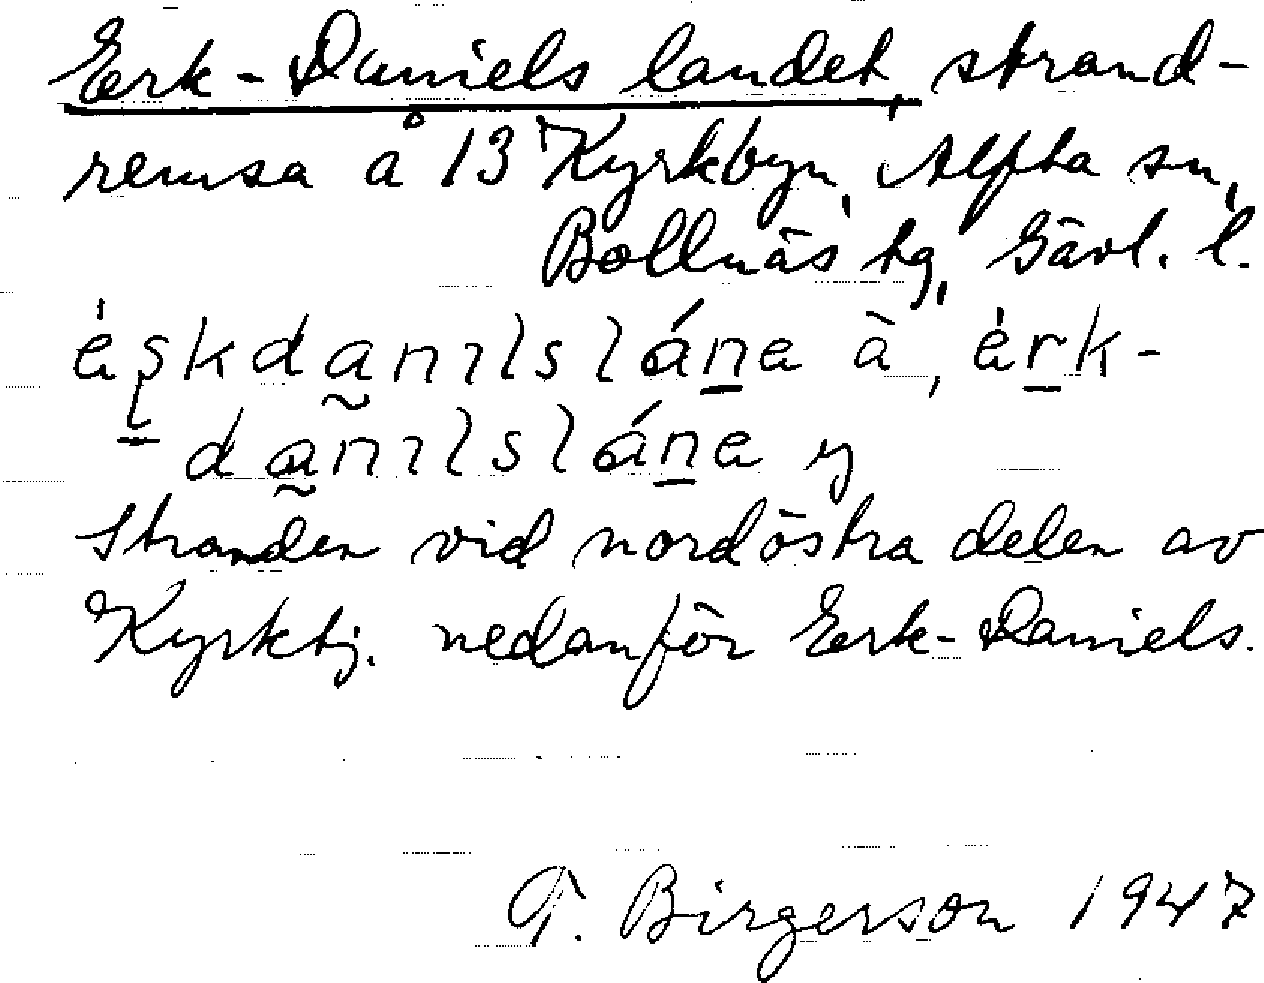 Erk-Daniels landet, strand-
remsa å 13 Kyrkbyn, Alfta sn,
Bollnäs tg, Gävl. l.
é̱şkda̰nɩlsláṉe à, érḵ-
da̰nɩlsláṉe y
Stranden vid nordöstra delen av
Kyrktj. nedanför Erk-Daniels.
T. Birgerson 1947